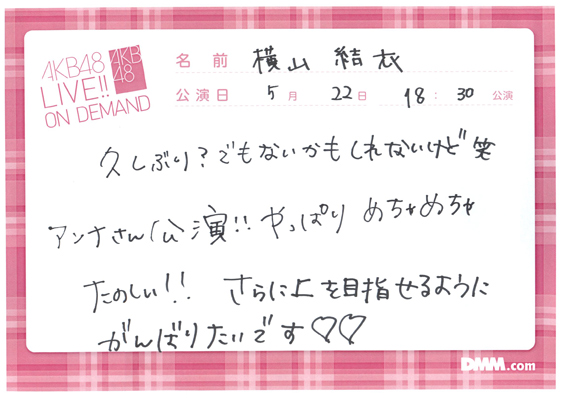 AKB48
LIVE!!
ON DEMAND
AKB
48
名前 横山 結衣
公演日 5月 22日 18:30 公演
久しぶり?でもないかもしれないけど笑
アンナさん公演!! やっぱり めちゃめちゃ
たのしい!! さらに上を目指せるように
がんばりたいです♡♡
DMM.com